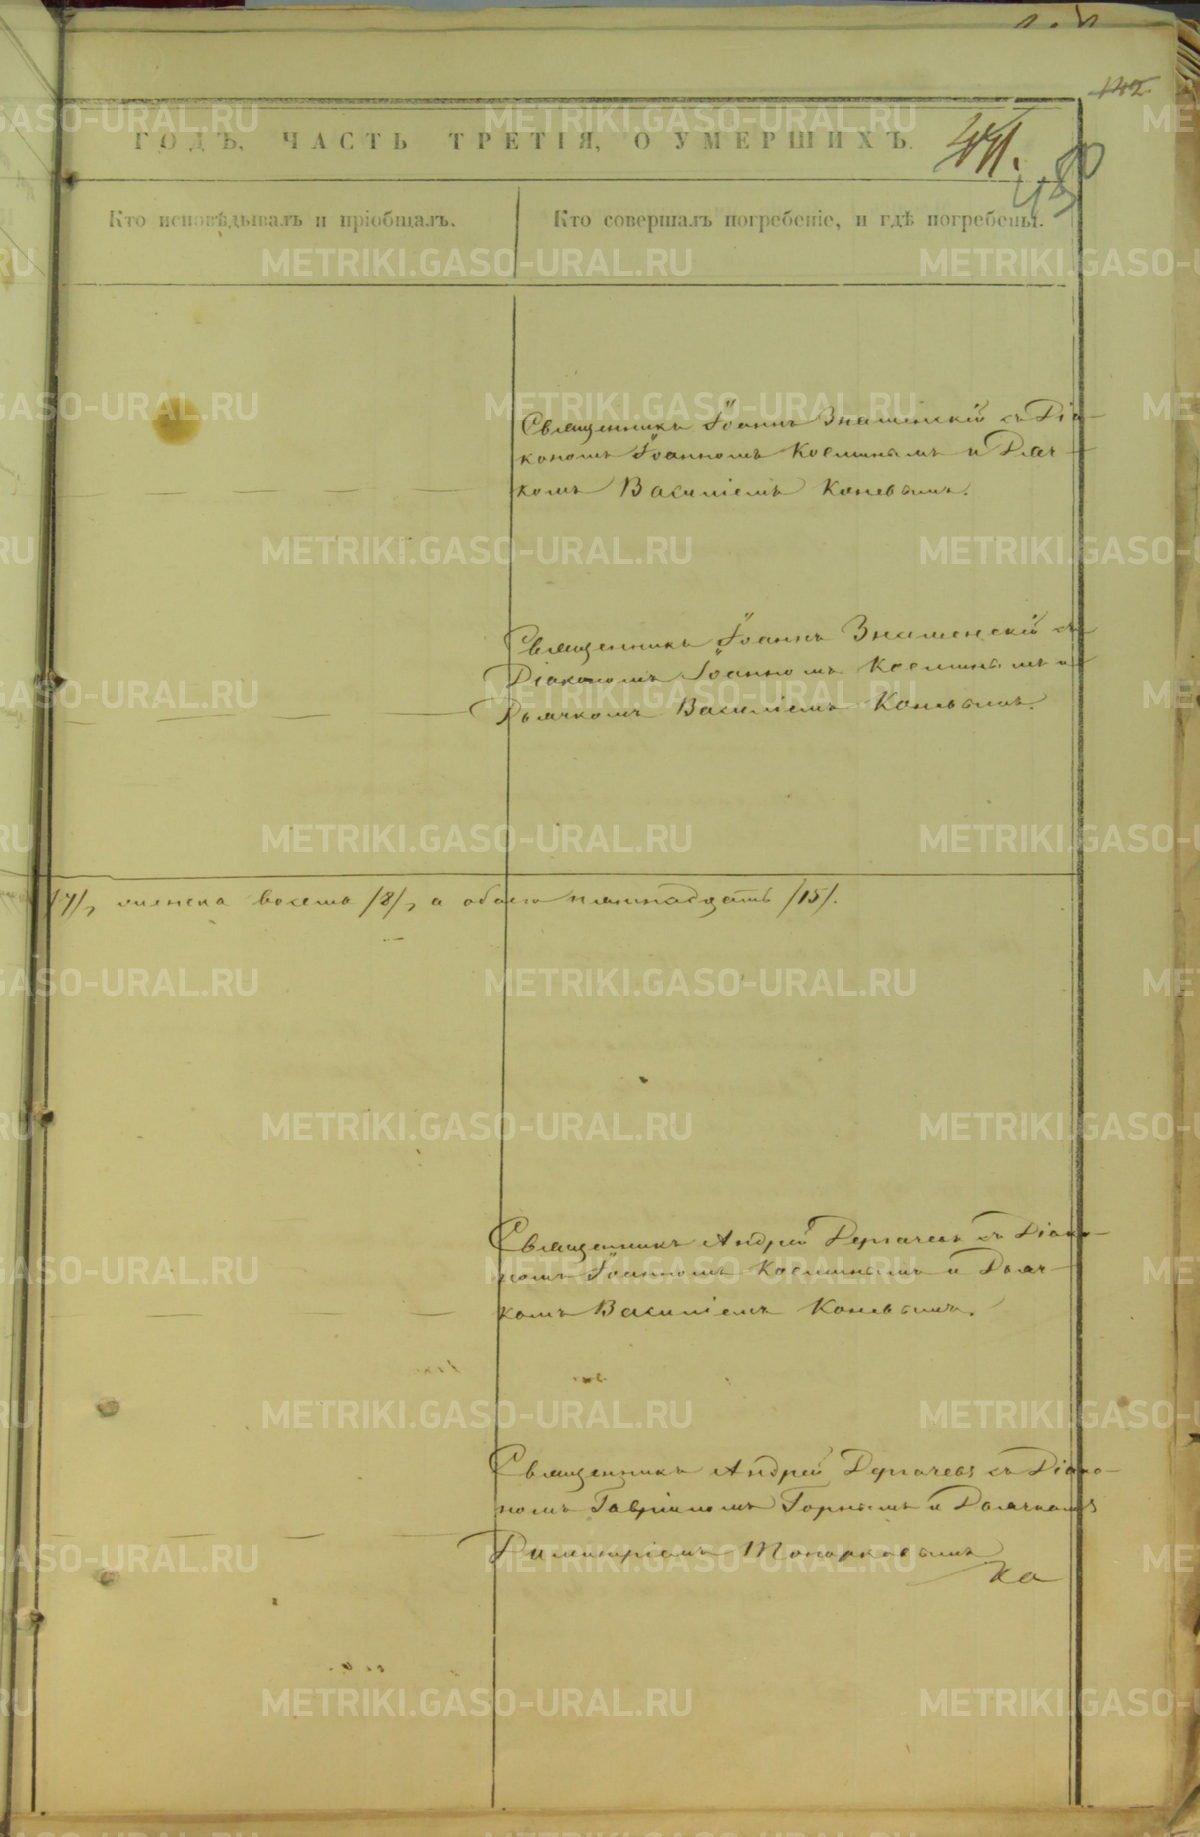 142
ГОДЪ, ЧАСТЬ ТРЕТІЯ, О УМЕРШИХЪ.
Кто исповѣдывалъ и пріобщалъ.
Кто совершалъ погребеніе, и гдѣ погребены.
Священникъ Іоаннъ Знаменскій съ Діа-
кономъ Іоанномъ Космынымъ и Дьяч-
комъ Василіемъ Коневымъ.
Священникъ Іоаннъ Знаменскій съ
Діакономъ Іоанномъ Космынымъ и
Дьячкомъ Василіемъ Коневымъ.
/7/, женска восемь /8/, а обоего пятнадцать /15/.
Священникъ Андрей Дергачевъ съ Діако-
номъ Іоанномъ Космынымъ и Дьяч-
комъ Василіемъ Коневымъ.
Священникъ Андрей Дергачевъ съ Діако-
номъ Гавріиломъ Горнымъ и Дьячкомъ
Димитріемъ Топорковымъ
METRIKI.GASO-URAL.RU